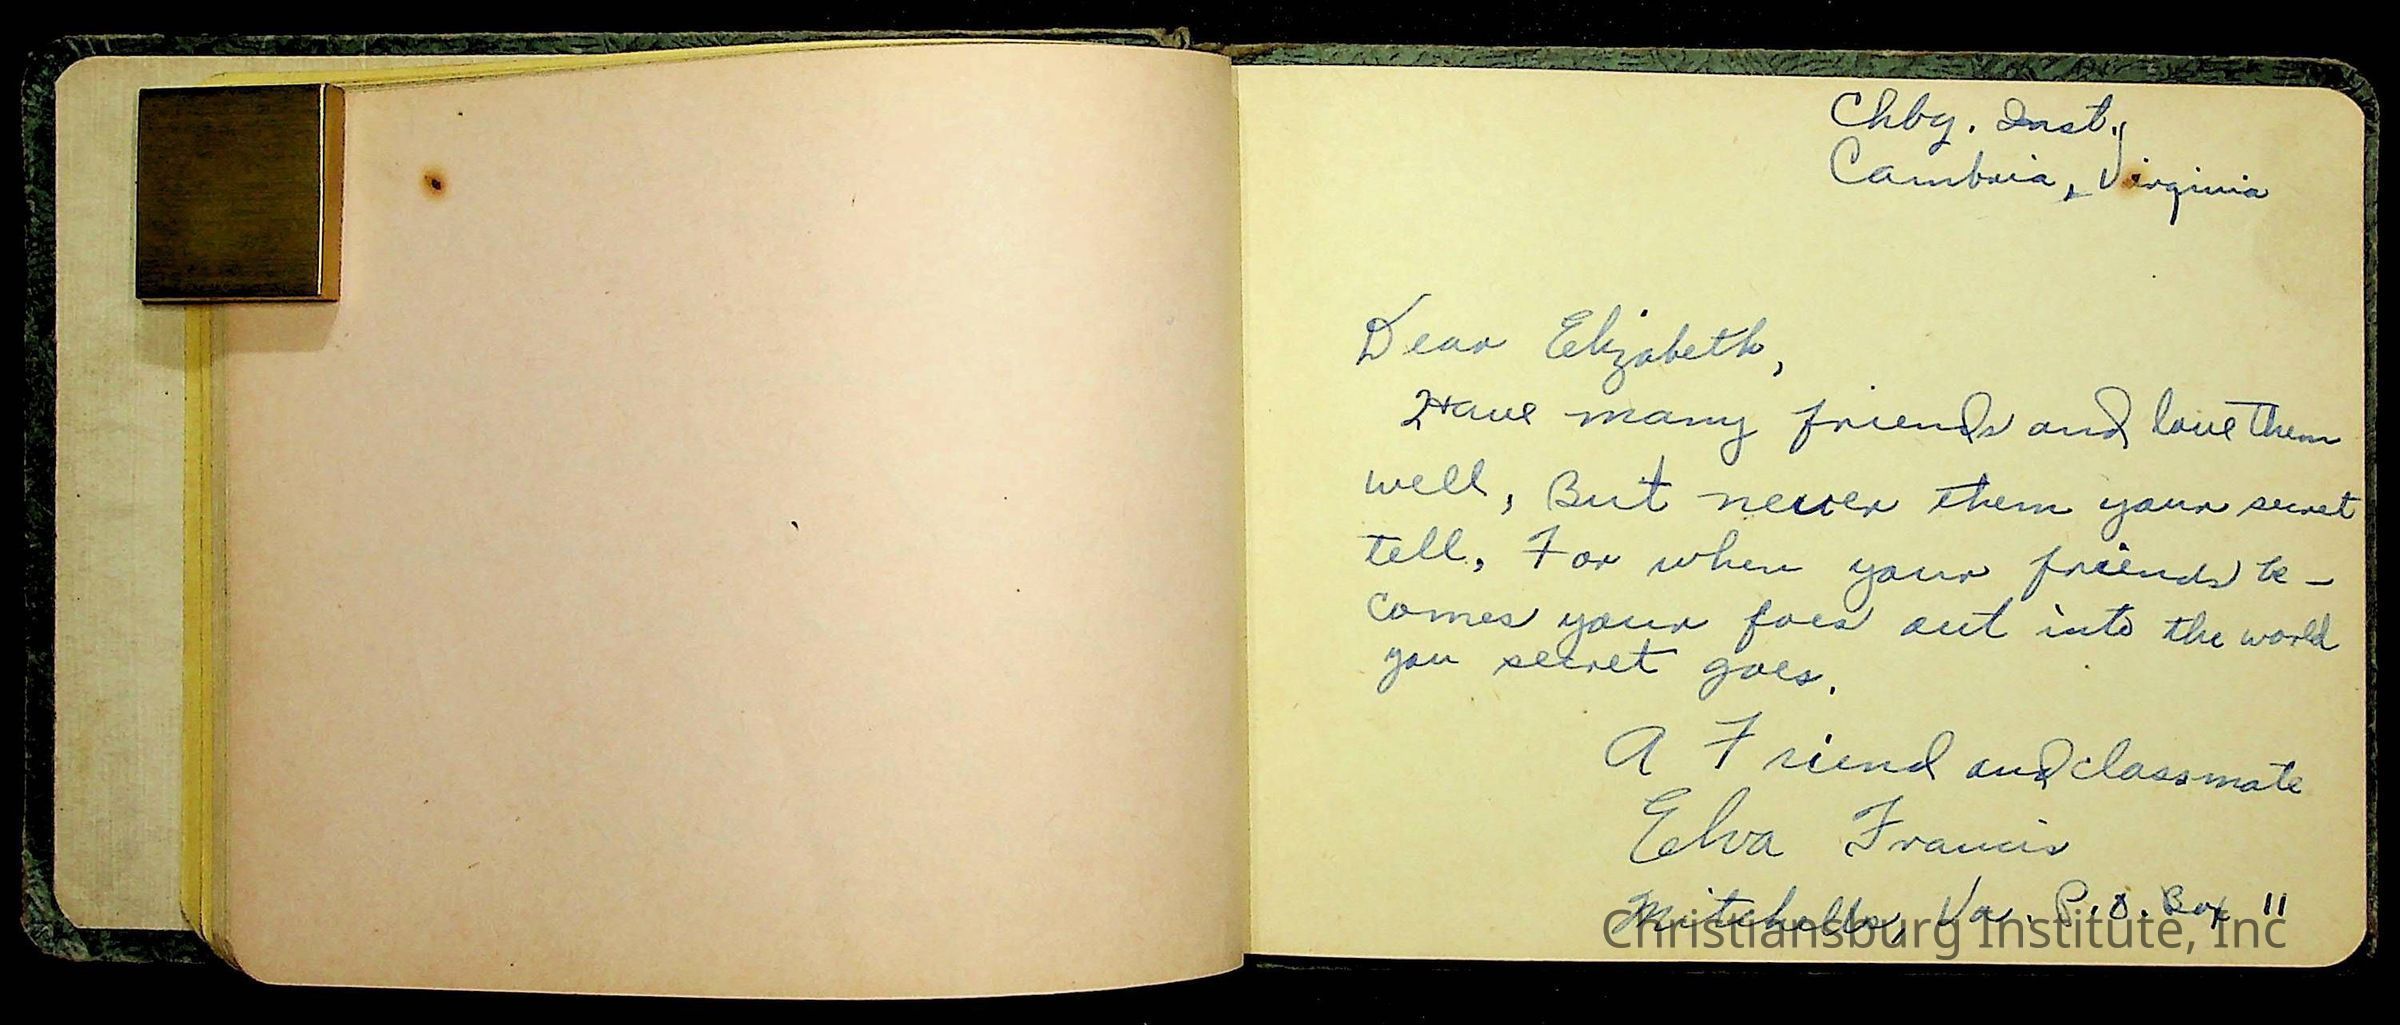 Chbg. Inst.,
Cambria, Virginia
Dear Elizabeth,
Have many friends and love them
well, But never them your secret
tell, For when your friends be-
comes your foes out into the world
you secret goes.
A Friend and classmate
Elva Francis
Mitchells, Va. P.O. Box 11
Christiansburg Institute, Inc